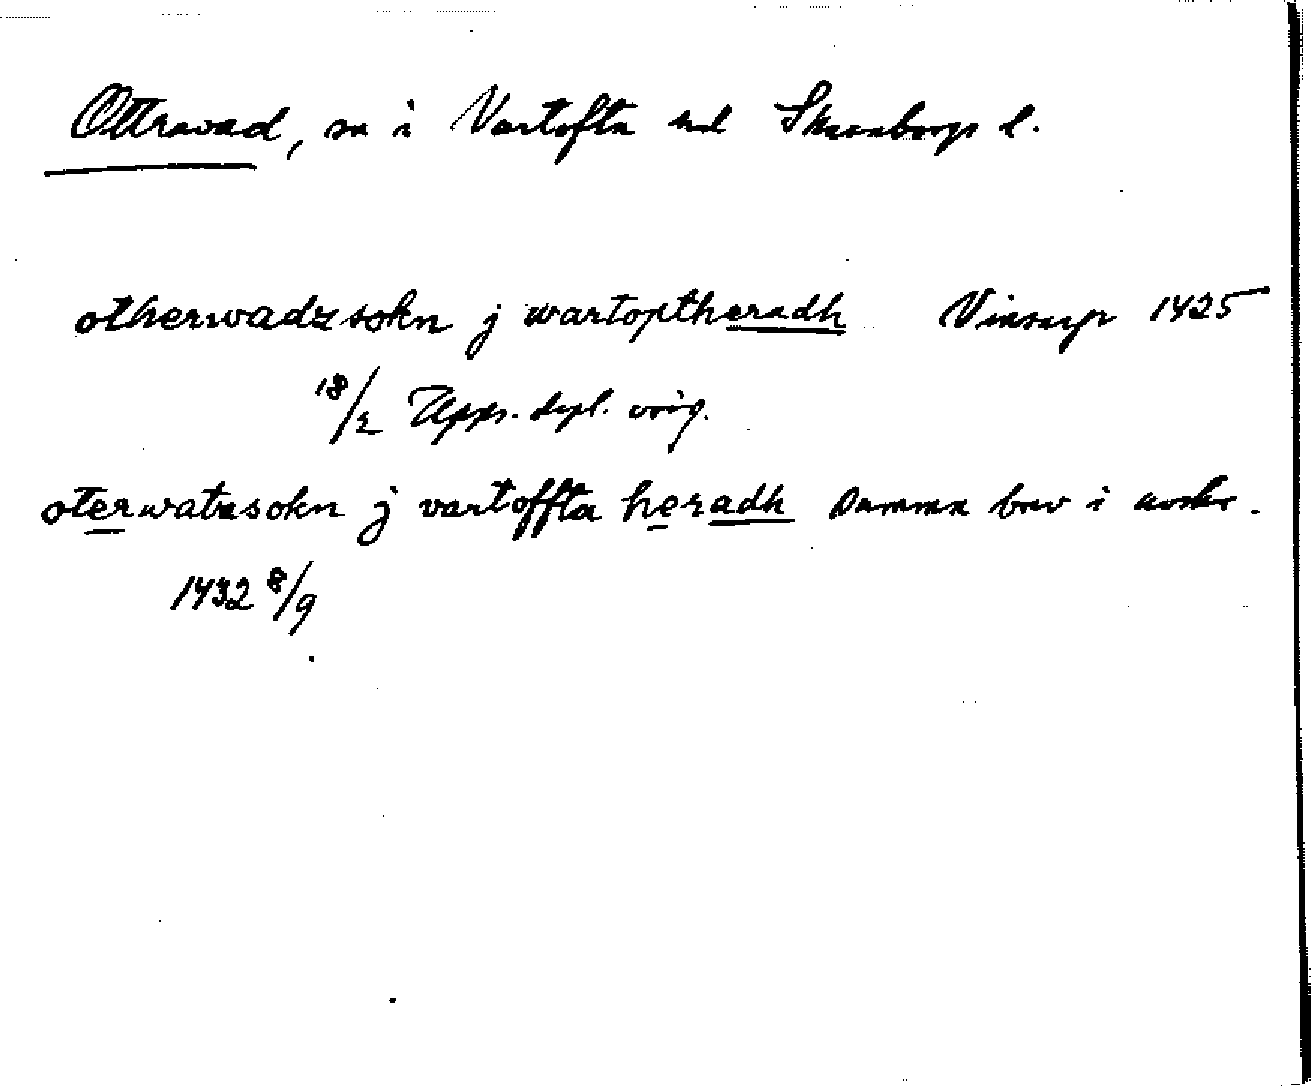 Ottravad, sn i Vartofta hd Skaraborgs l.
otherwadzsokn j wartoptheradh Vinsarp 1425
18/2 Upps. dipl. orig.
oterwatzsokn j vartoffta heradh Samma brev i avskr.
1432 8/9